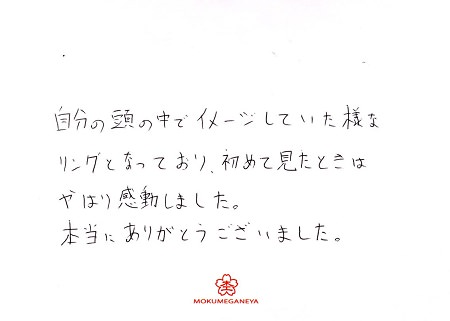 自分の頭の中でイメージしていた様な
リングとなっており、初めて見たときは
やはり感動しました。
本当にありがとうございました。
MOKUMEGANEYA